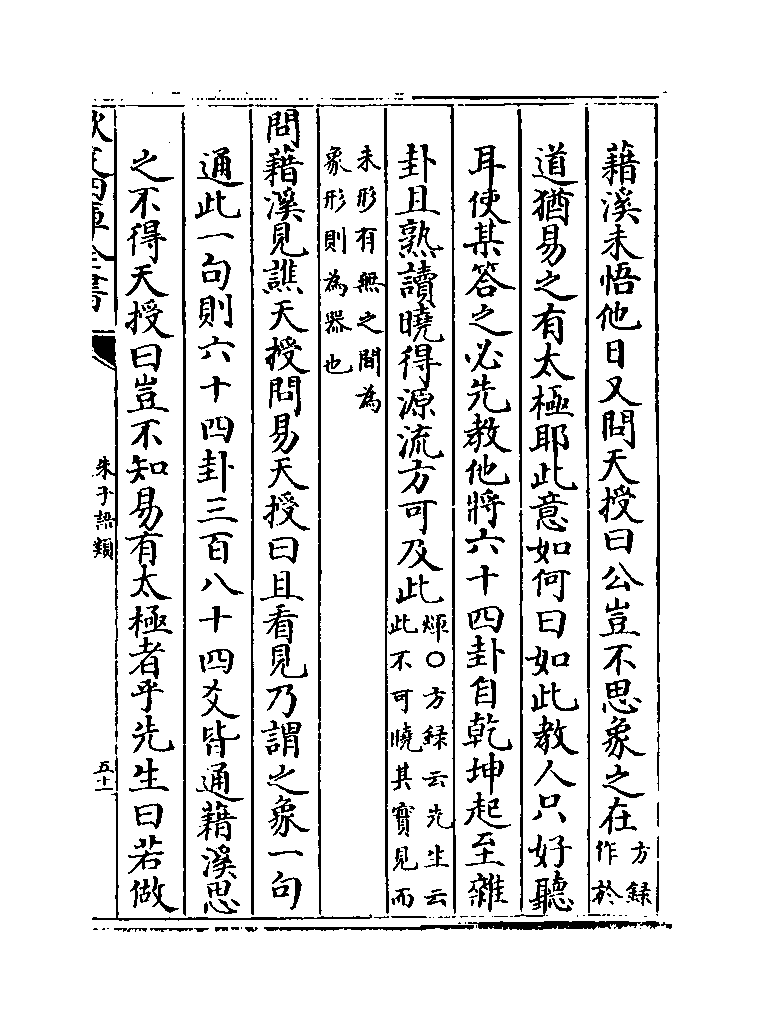 藉溪未悟他日又問天授曰公豈不思象之在方録作於
道猶易之有太極耶此意如何曰如此教人只好聽
耳使某答之必先教他將六十四卦自乾坤起至雜
卦且熟讀曉得源流方可及此㷓○方録云先生云此不可曉其實見而
未形有無之間為象形則為器也
問藉溪見譙天授問易天授曰且看見乃謂之象一句
通此一句則六十四卦三百八十四爻皆通藉溪思
之不得天授曰豈不知易有太極者乎先生曰若做
欽定四庫全書
朱子語類
五十一